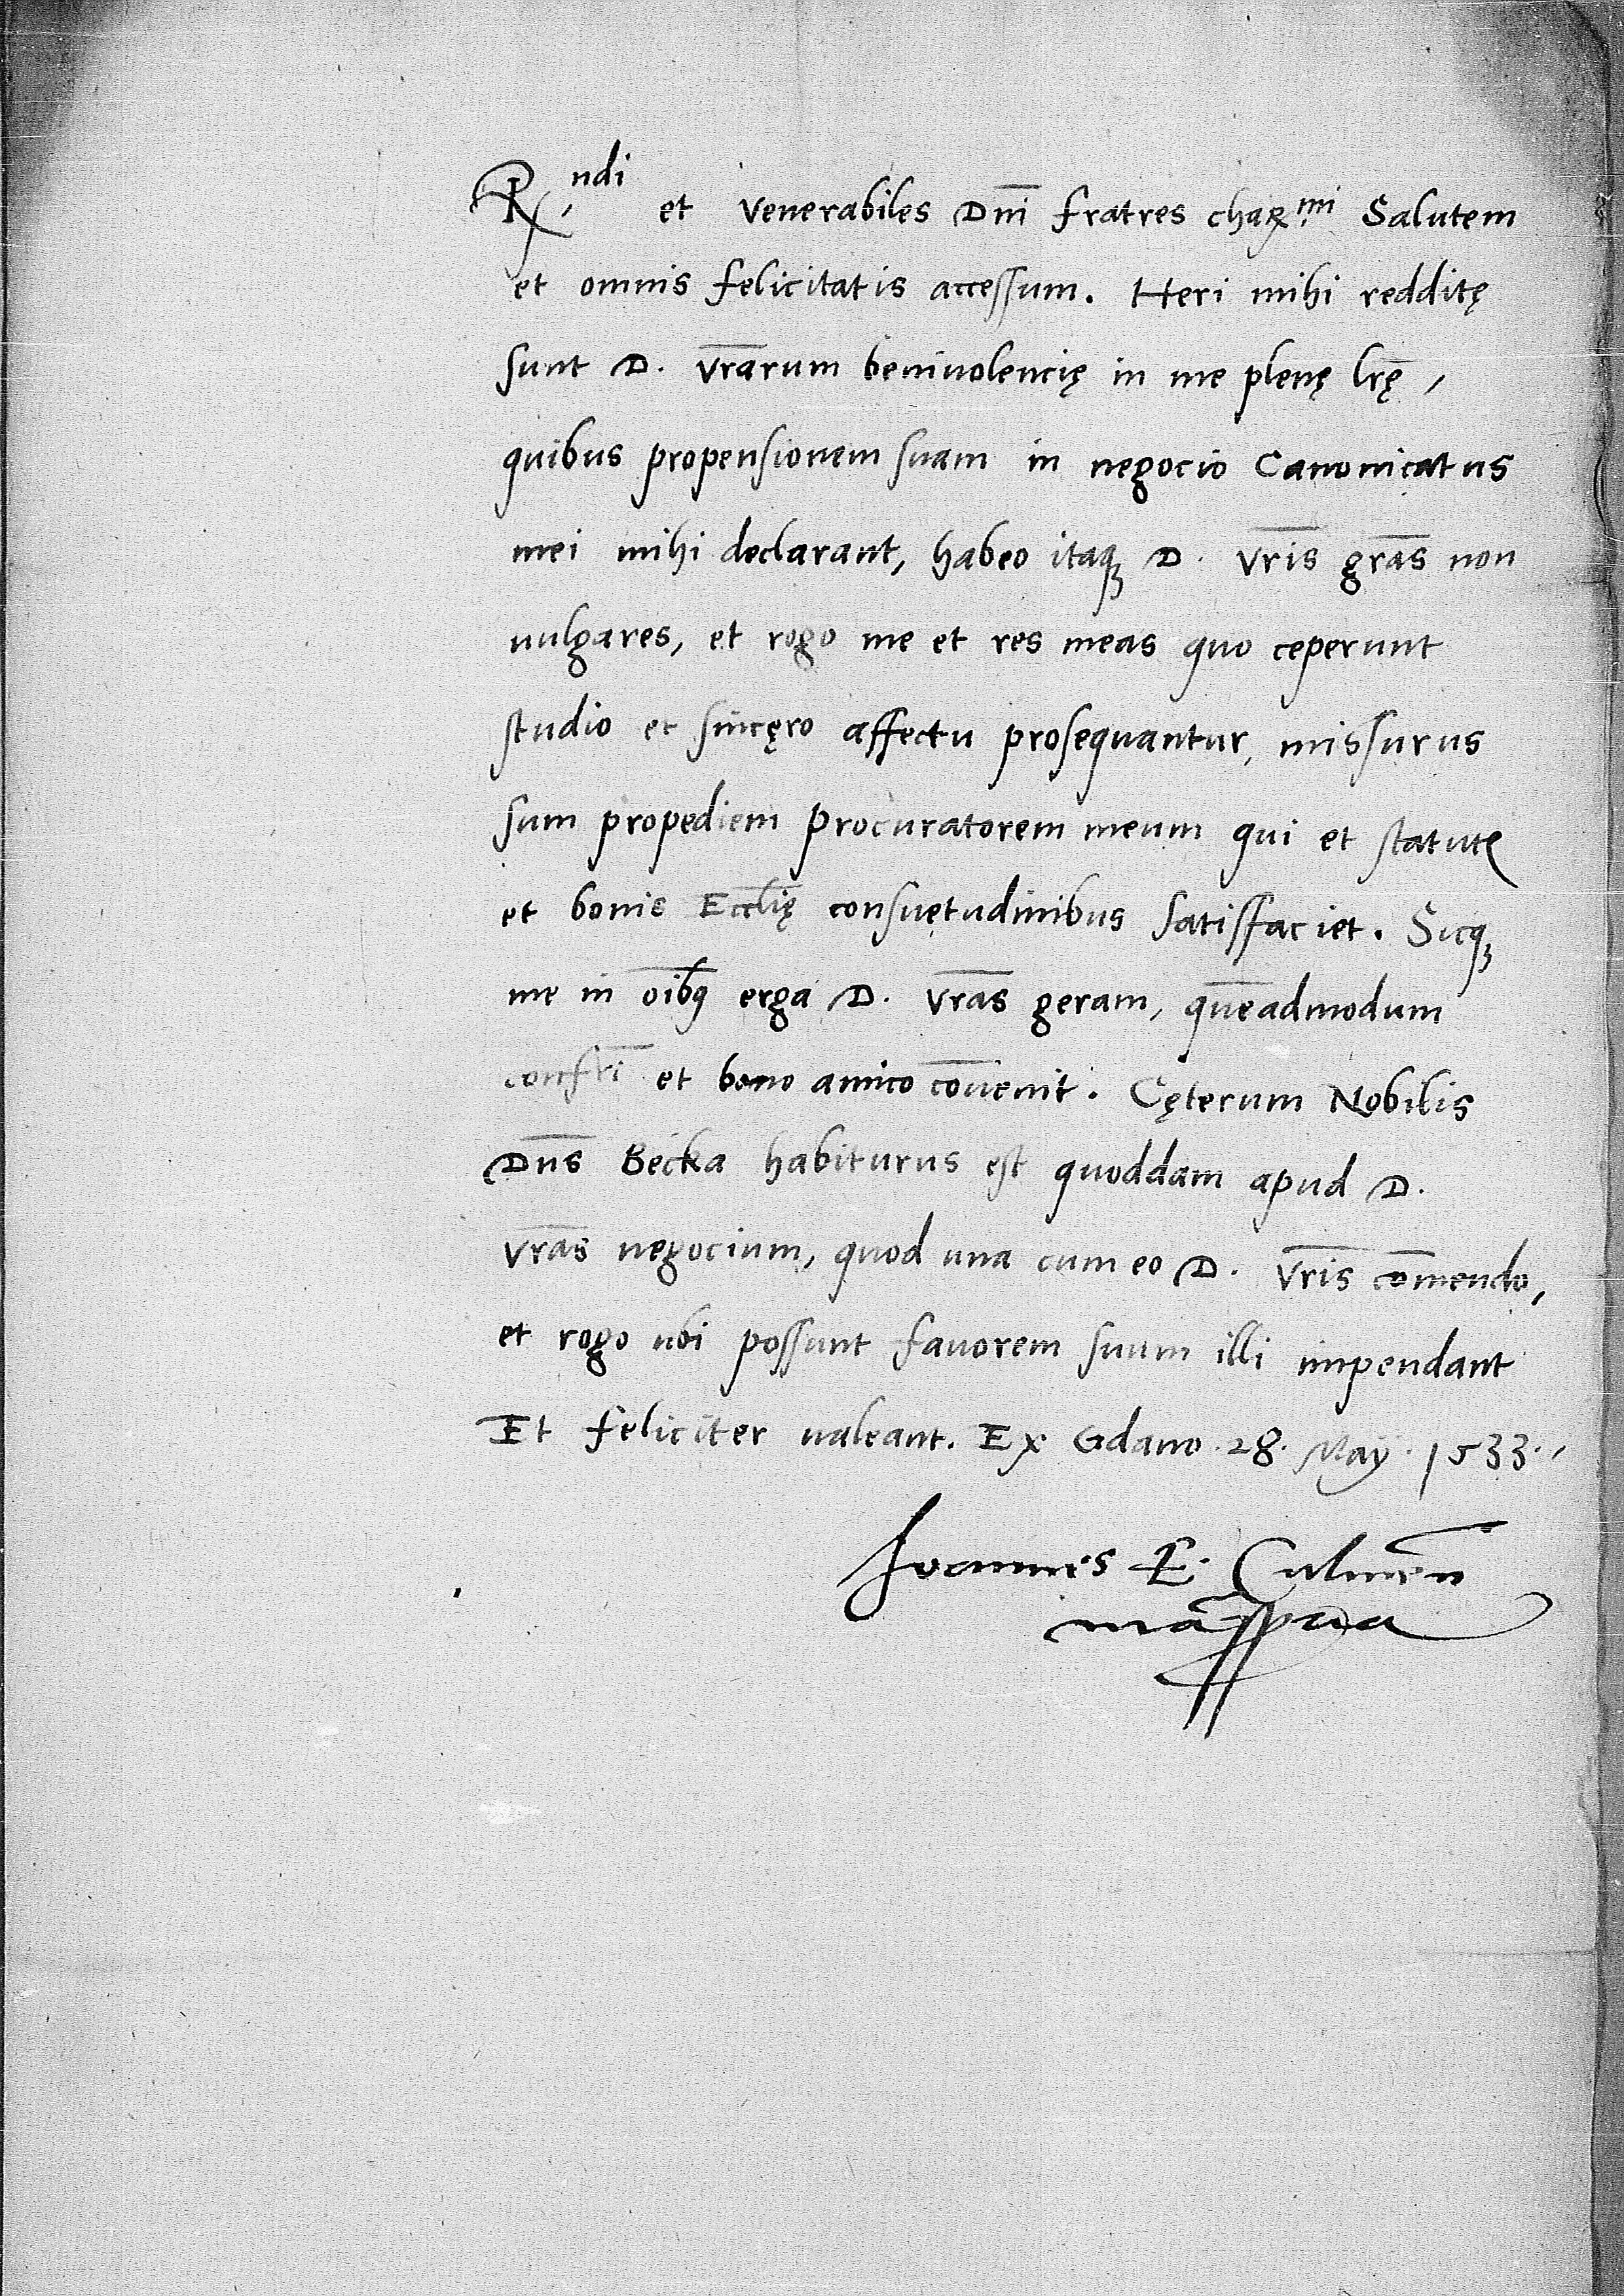 R.ndi et Venerabiles Dn̄i fratres char.mi Salutem
et omnis felicitatis accessum. Heri mihi redditę
sunt D. Vr̄arum beniuolencię in me plenę lr̄ę,
quibus propensionem suam in negocio Canonicatus
mei mihi declarant, habeo itaqꝫ D. Vr̄is gr̄as non
uulgares, et rogo me et res meas quo ceperunt
studio et sincęro affectu prosequantur, missurus
sum propediem procuratorem meum qui et statutꝭ
et bonis Eccl̄ię consuetudinibus satisfaciet. Sicqꝫ
me in oībꝰ erga D. Vr̄as geram, quēadmodum
confr̄i et bono amico cōuenit. Cęterum Nobilis
Dn̄s Becka habiturus est quoddam apud D.
Vr̄as negocium, quod una cum eo D. Vr̄is cōmendo,
et rogo ubi possunt fauorem suum illi impendant
Et feliciter ualeant. Ex Gdano .28. Maÿ. 1533.,
Joannes E. Culmen̄
mā ꝓpria